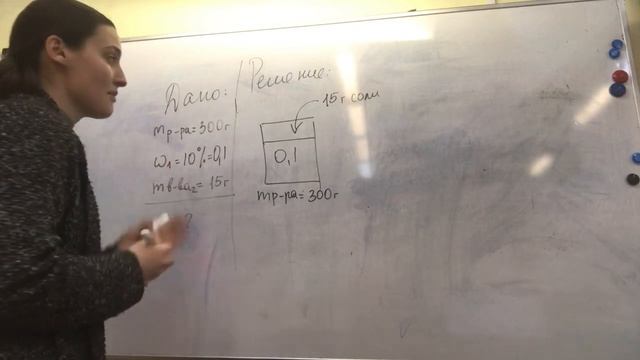 Дано:
mр-ра=300г
ω₁=10%=0,1
mв-ва₂=15г
?
Решение:
15г соли
0,1
mр-ра=300г